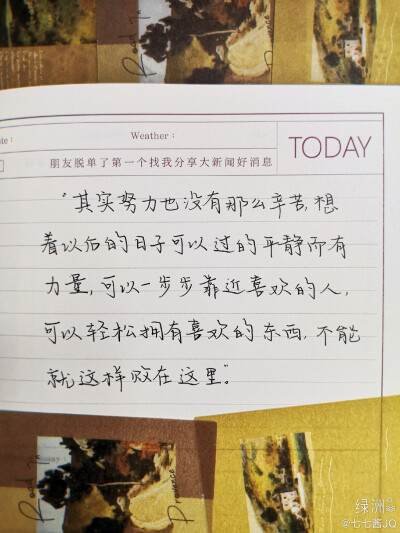 Weather：
TODAY
朋友脱单了第一个找我分享大新闻好消息
“其实努力也没有那么辛苦,想
着以后的日子可以过的平静而有
力量,可以一步步靠近喜欢的人,
可以轻松拥有喜欢的东西,不能
就这样败在这里”。
绿洲
@七七酱JO